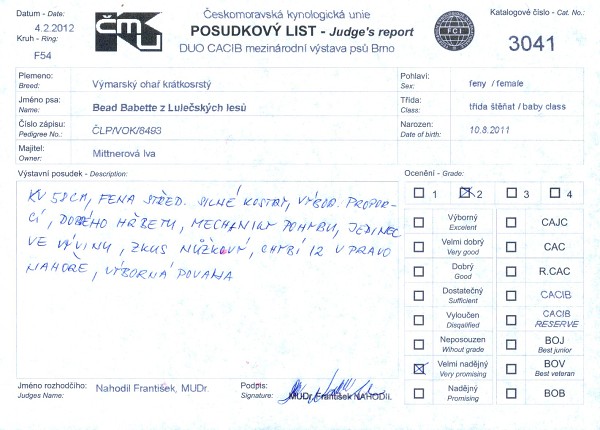 Datum - Date:
4.2.2012
Kruh - Ring:
F54
ČMKU
Českomoravská kynologická unie
POSUDKOVÝ LIST - Judge's report
DUO CACIB mezinárodní výstava psů Brno
FCI
Katalogové číslo - Cat. No.:
3041
Plemeno:
Breed:
Výmarský ohař krátkosrstý
Pohlaví:
Sex:
feny / female
Jméno psa:
Name:
Bead Babette z Lulečských lesů
Třída:
Class:
třída štěňat / baby class
Číslo zápisu:
Pedigree No.:
ČLP/VOK/8493
Narozen:
Date of birth:
10.8.2011
Majitel:
Owner:
Mittnerová Iva
Výstavní posudek - Description:
KV 58CM, FENA STŘED. SILNÉ KOSTRY, VÝBOR. PROPOR-
CÍ, DOBRÉHO HŘBETU, MECHANIKY POHYBU, JEDINEC
VE VÝVINU, ZKUS NŮŽKOVÝ, CHYBÍ 12 VPRAVO
NAHOŘE, VÝBORNÁ POVAHA
Ocenění - Grade:
1 2 3 4
Výborný
Excelent
CAJC
Velmi dobrý
Very good
CAC
Dobrý
Good
R.CAC
Dostatečný
Sufficient
CACIB
Vyloučen
Disqalified
CACIB
RESERVE
Neposouzen
Without grade
BOJ
Best junior
Velmi nadějný
Very promising
BOV
Best veteran
Nadějný
Promising
BOB
Jméno rozhodčího:
Judges Name:
Nahodil František, MUDr.
Podpis:
Signature:
MUDr. František NAHODIL